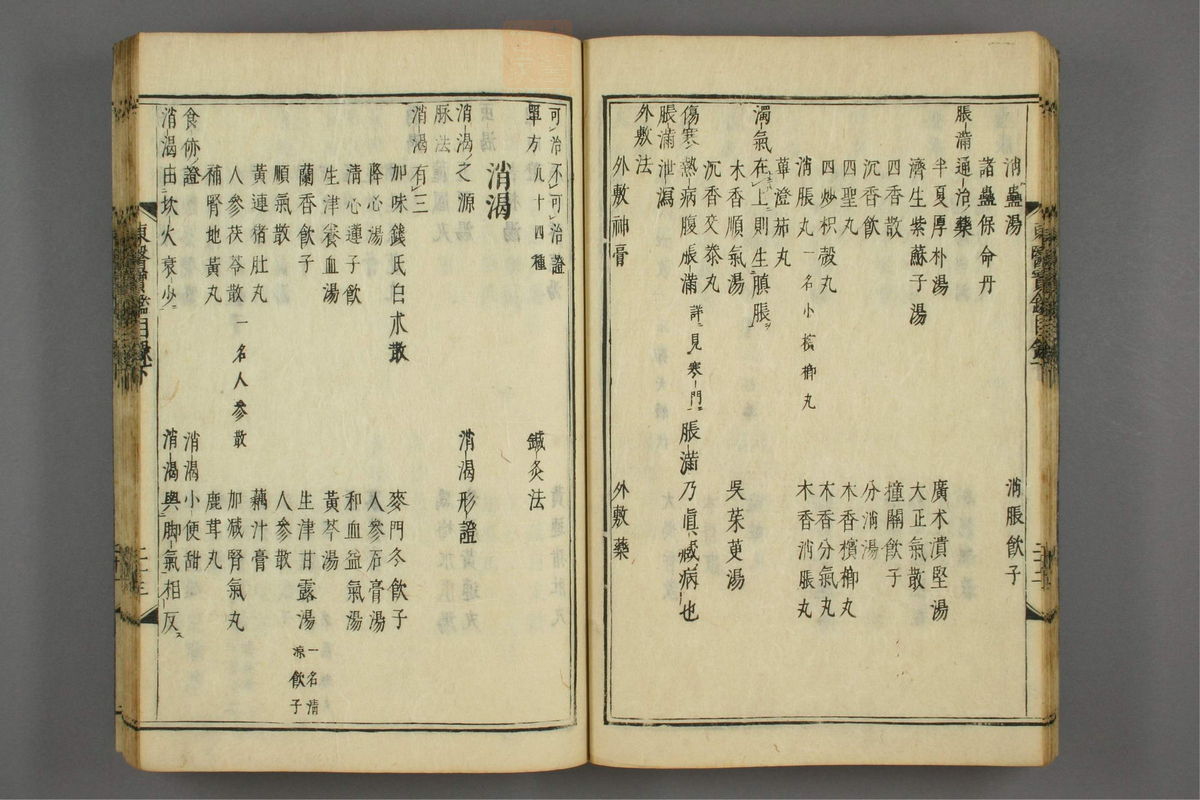 消蠱湯　消脹飲子
諸蠱保命丹
脹滿通治藥
半夏厚朴湯　廣朮潰堅湯
濟生紫蘇子湯　大正氣散
四香散　撞關飲子
沉香飲　分消湯
四聖丸　木香檳榔丸
四炒枳殼丸　木香分氣丸
消脹丸 一名小檳榔丸　木香消脹丸
蓽澄茄丸
濁氣在上則生䐜脹
木香順氣湯　吳茱萸湯
沉香交泰丸
傷寒熱病腹脹滿 詳見寒門　脹滿乃眞臟病也
脹滿泄瀉
外敷法
外敷神膏　外敷藥
可治不可治證
單方 九十四種　鍼灸法
消渴
消渴之源　消渴形證
脉法
消渴有三
加味錢氏白朮散　麥門冬飲子
降心湯　人參石膏湯
清心蓮子飲　和血益氣湯
生津養血湯　黃芩湯
蘭香飲子　生津甘露湯 一名清凉飲子
順氣散　人參散
黃連猪肚丸　藕汁膏
人參茯苓散 一名人參散　加減腎氣丸
補腎地黃丸　鹿茸丸
食㑊證　消渴小便甜
消渴由坎火衰少　消渴與脚氣相反
東醫寶鑑目録下